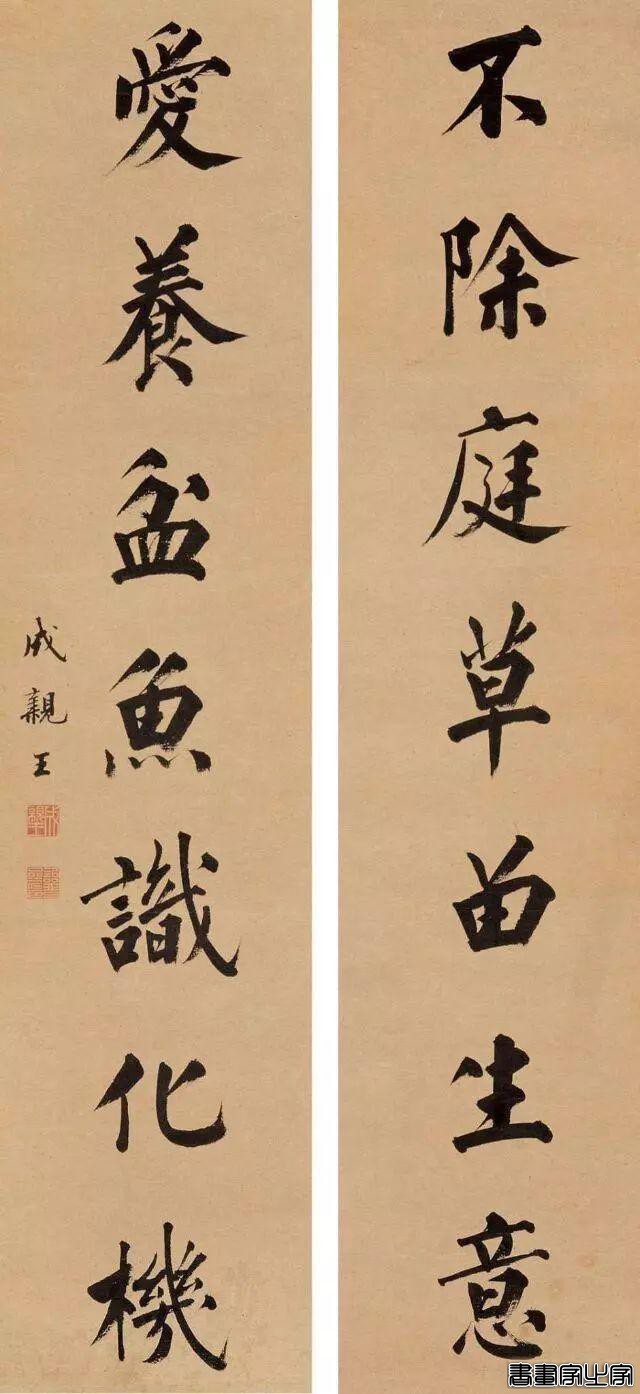 不除庭草留生意
愛養盆魚識化機
成親王
書畫家之家